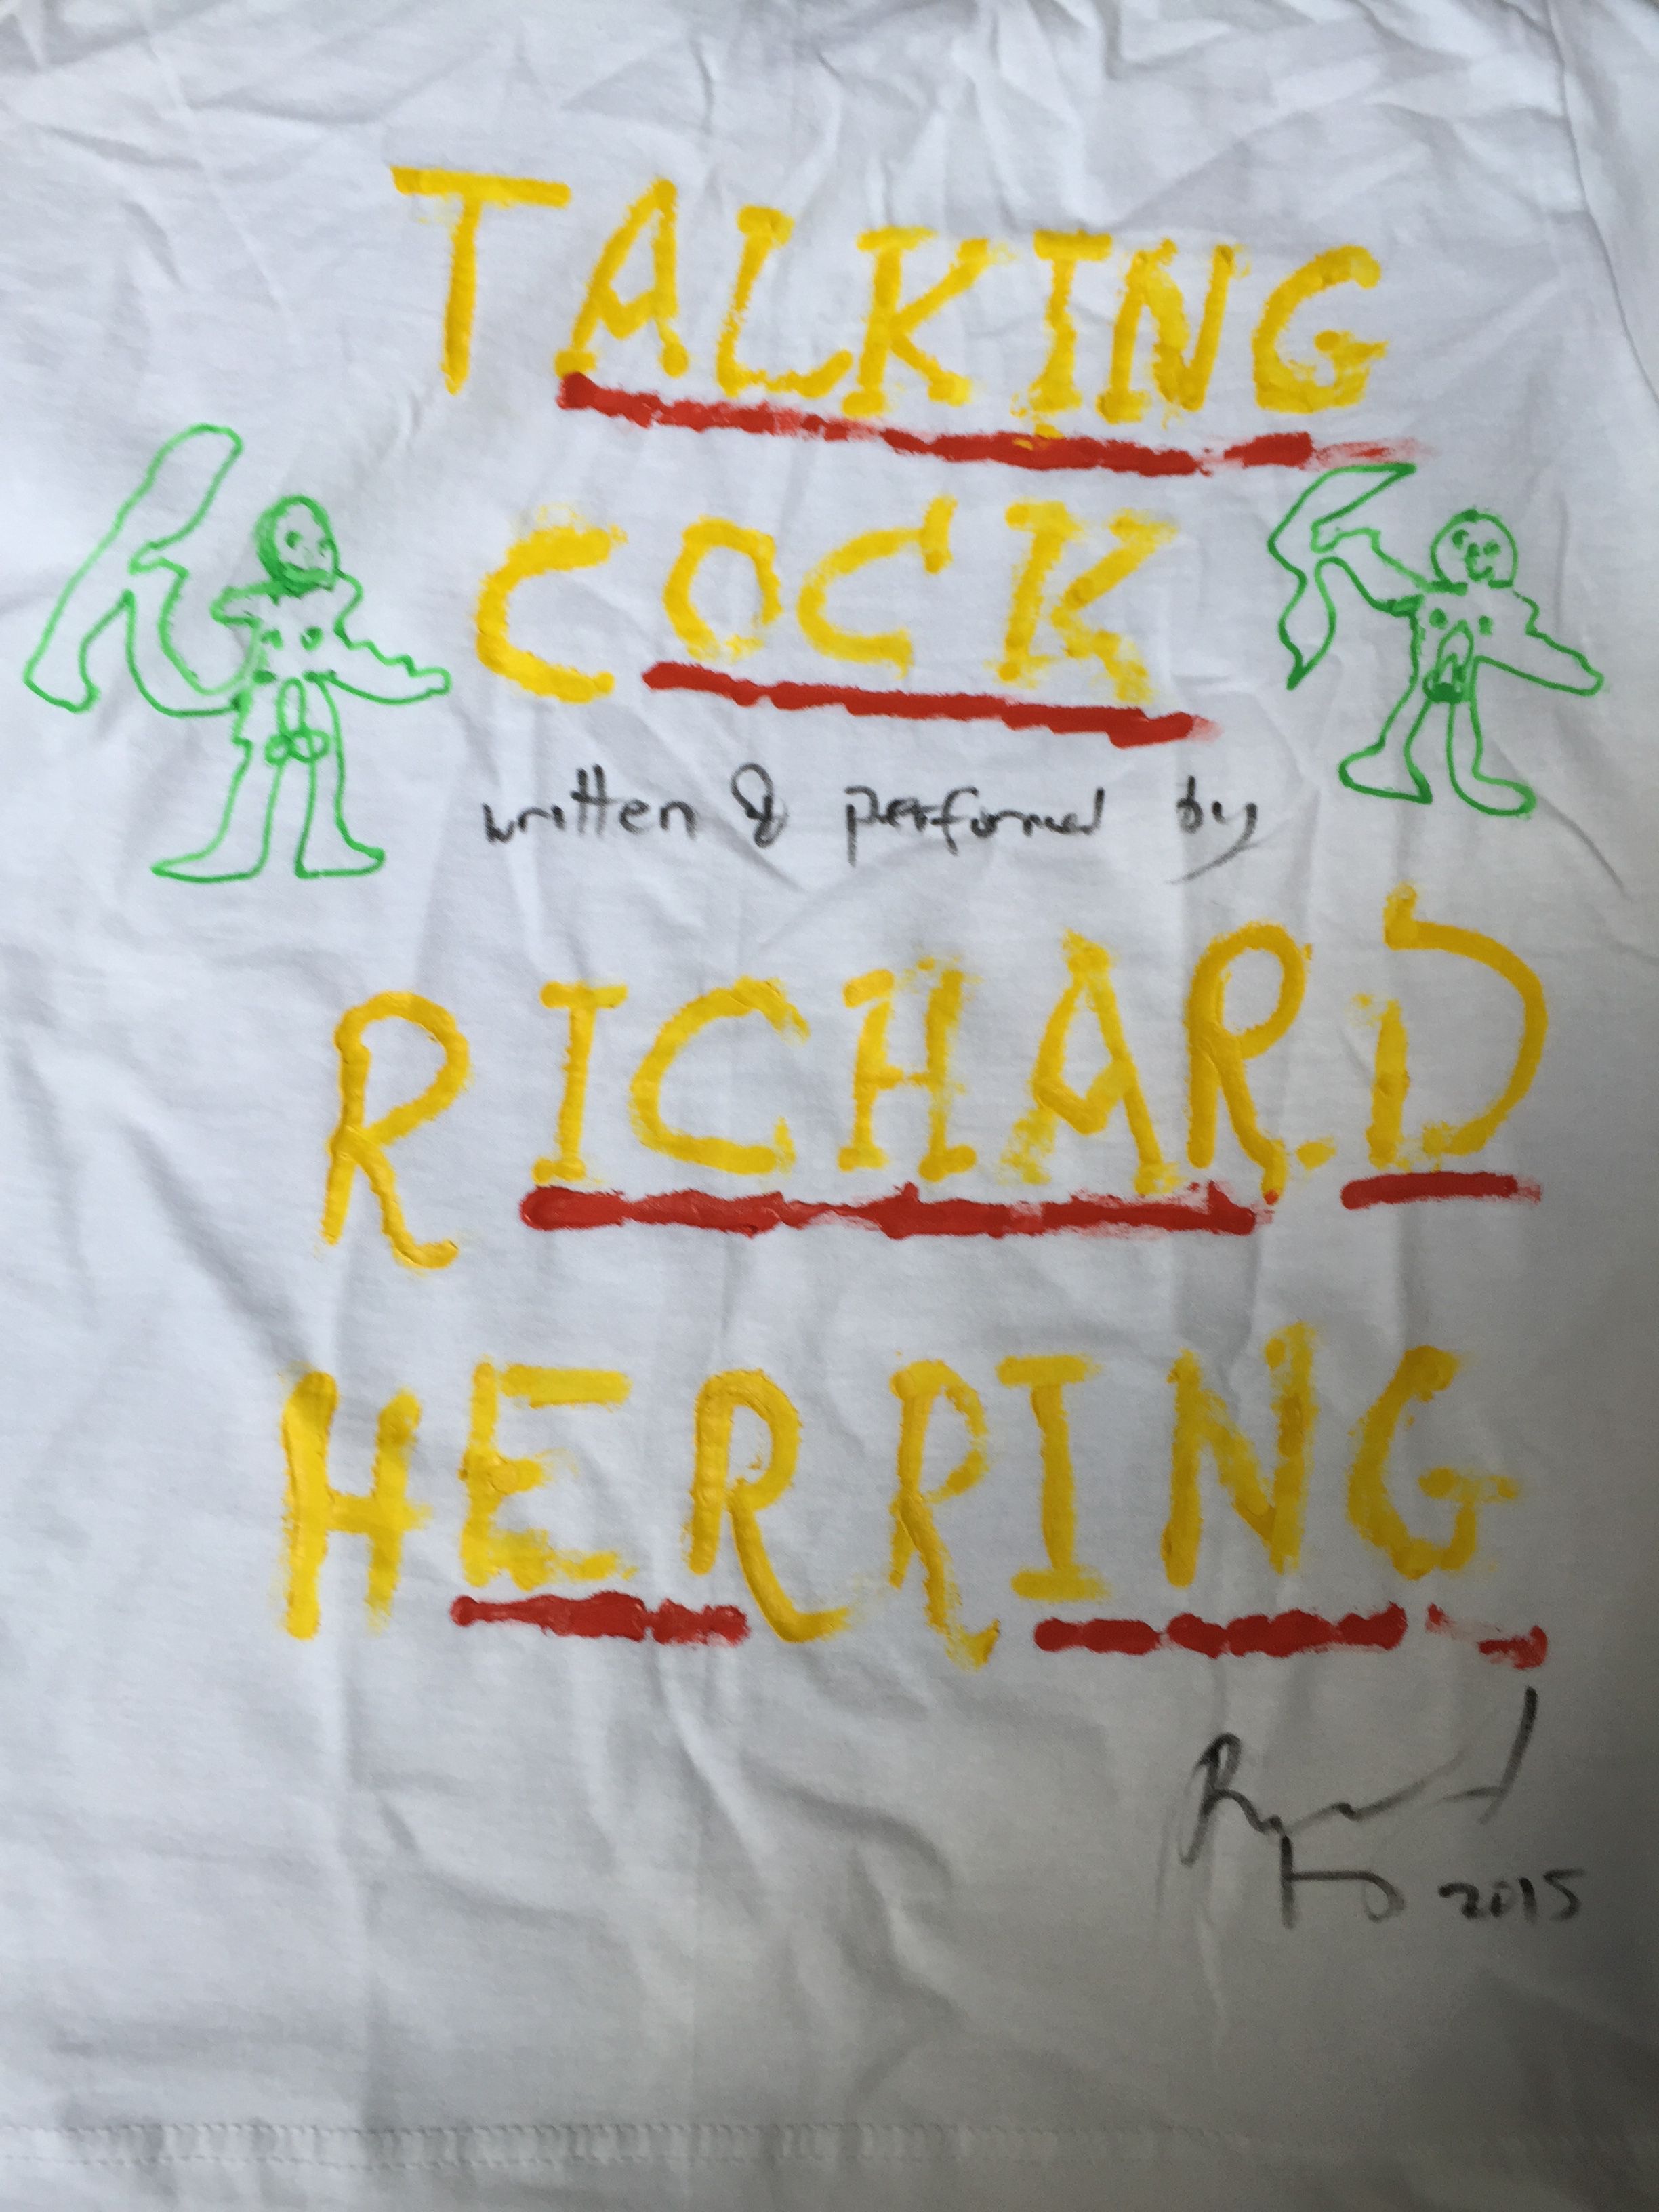 TALKING
COCK
written & performed by
RICHARD
HERRING
2015